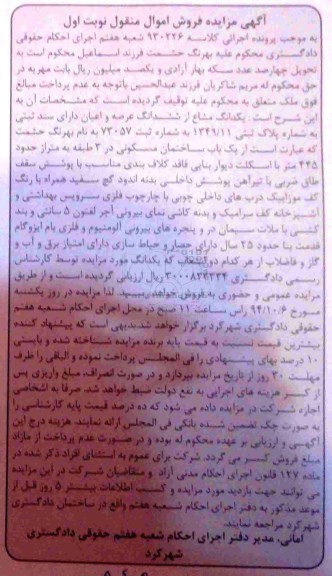 آگهی مزایده فروش اموال منقول نوبت اول
به موجب پرونده اجرائی کلاسه ۹۳۰۲۲۶ شعبه هفتم اجرای احکام حقوقی
دادگستری محکوم علیه بهرنگ حشمت فرزند اسماعیل محکوم است به
تحویل چهارصد عدد سکه بهار آزادی و یکصد میلیون ریال بابت مهریه در
حق محکوم له مریم شاکریان فرزند عبدالحسین باتوجه به عدم پرداخت مبالغ
فوق ملک متعلق به محکوم علیه توقیف گردیده است که مشخصات آن به
این شرح است . یکدانگ مشاع از ششدانگ عرصه و اعیان دارای سند ثبتی
به شماره پلاک ثبتی ۱۲۴۹/۱۱ به شماره ثبت ۷۳۰۵۷ به نام بهرنگ حشمت
که عبارت است از یک باب ساختمان مسکونی در ۲ طبقه به متراژ حدود
۴۴۵ متر با اسکلت دیوار بنایی فاقد کلاف بندی مناسب با پوشش سقف
طاق ضربی با تیرآهن پوشش داخلی بدنه اندود گچ سفید همراه با رنگ
کف موزاییک درب های داخلی چوبی با چارچوب فلزی سرویس بهداشتی و
آشپزخانه کف سرامیک و بدنه کاشی نمای بیرونی آجر لفتون ۵ سانتی و بند
کشی با ملات سیمان در و پنجره های بیرونی آلومینیوم و فلزی بام ایزوگام
قدمت بنا حدود ۲۵ سال دارای حصار و حیاط سازی دارای امتیاز برق و آب و
گاز و فاضلاب از هر کدام دو انشعاب که یکدانگ مورد مزایده توسط کارشناس
رسمی دادگستری ۳۰۰۰۸۳۳۳۳۴ ریال ارزیابی گردیده است و از طریق
مزایده عمومی و حضوری به فروش خواهد رسید. لذا مزایده در روز یکشنبه
مورخ ۹۴/۱۰/۶ راس ساعت ۱۱ صبح در محل اجرای احکام شعبه هفتم
حقوقی دادگستری شهرکرد برگزار خواهد شد بدیهی است که پیشنهاد کننده
بیشترین قیمت نسبت به قیمت پایه برنده مزایده شناخته شده و بایستی
۱۰ درصد بهای پیشنهادی را فی المجلس پرداخت نموده و الباقی را ظرف
مهلت ۳۰ روز از تاریخ مزایده بپردازد و در صورت انصراف، مبلغ واریزی پس
از کسر هزینه های اجرایی به نفع دولت ضبط خواهد شد. صرفا به اشخاصی
اجازه شرکت در مزایده داده می شود که ده درصد قیمت پایه کارشناسی را
به صورت چک تضمین شده بانکی فی المجلس ارائه نمایند. هزینه درج این
آگهی و ارزیابی بر عهده محکوم له بوده و در صورت عدم پرداخت از مازاد
مبلغ فروش کسر می گردد. شرکت برای عموم به استثنای افراد ذکر شده در
ماده ۱۲۷ قانون اجرای احکام مدنی آزاد و متقاضیان شرکت در این مزایده
می توانند جهت بازدید مورد مزایده و کسب اطلاعات بیشتر ۵ روز قبل از
موعد مذکور به دفتر اجرای احکام شعبه هفتم واقع در ساختمان دادگستری
شهرکرد مراجعه نمایند.
امانی، مدیر دفتر اجرای احکام شعبه هفتم حقوقی دادگستری
شهرکرد